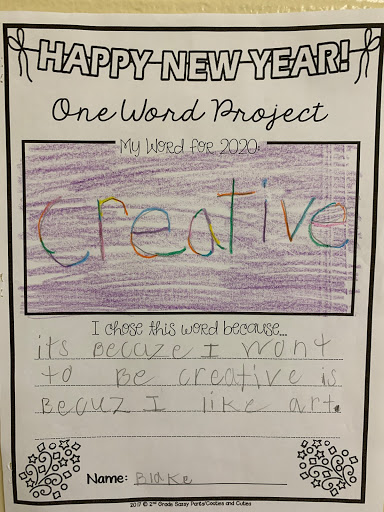 HAPPY NEW YEAR!
One Word Project
My Word for 2020:
creative
I chose this word because...
its Becaze I wont
to Be creative is
Becuz I like art.
Name: Blake
2017 © 2nd Grade Sassy Pants/Cooties and Cuties